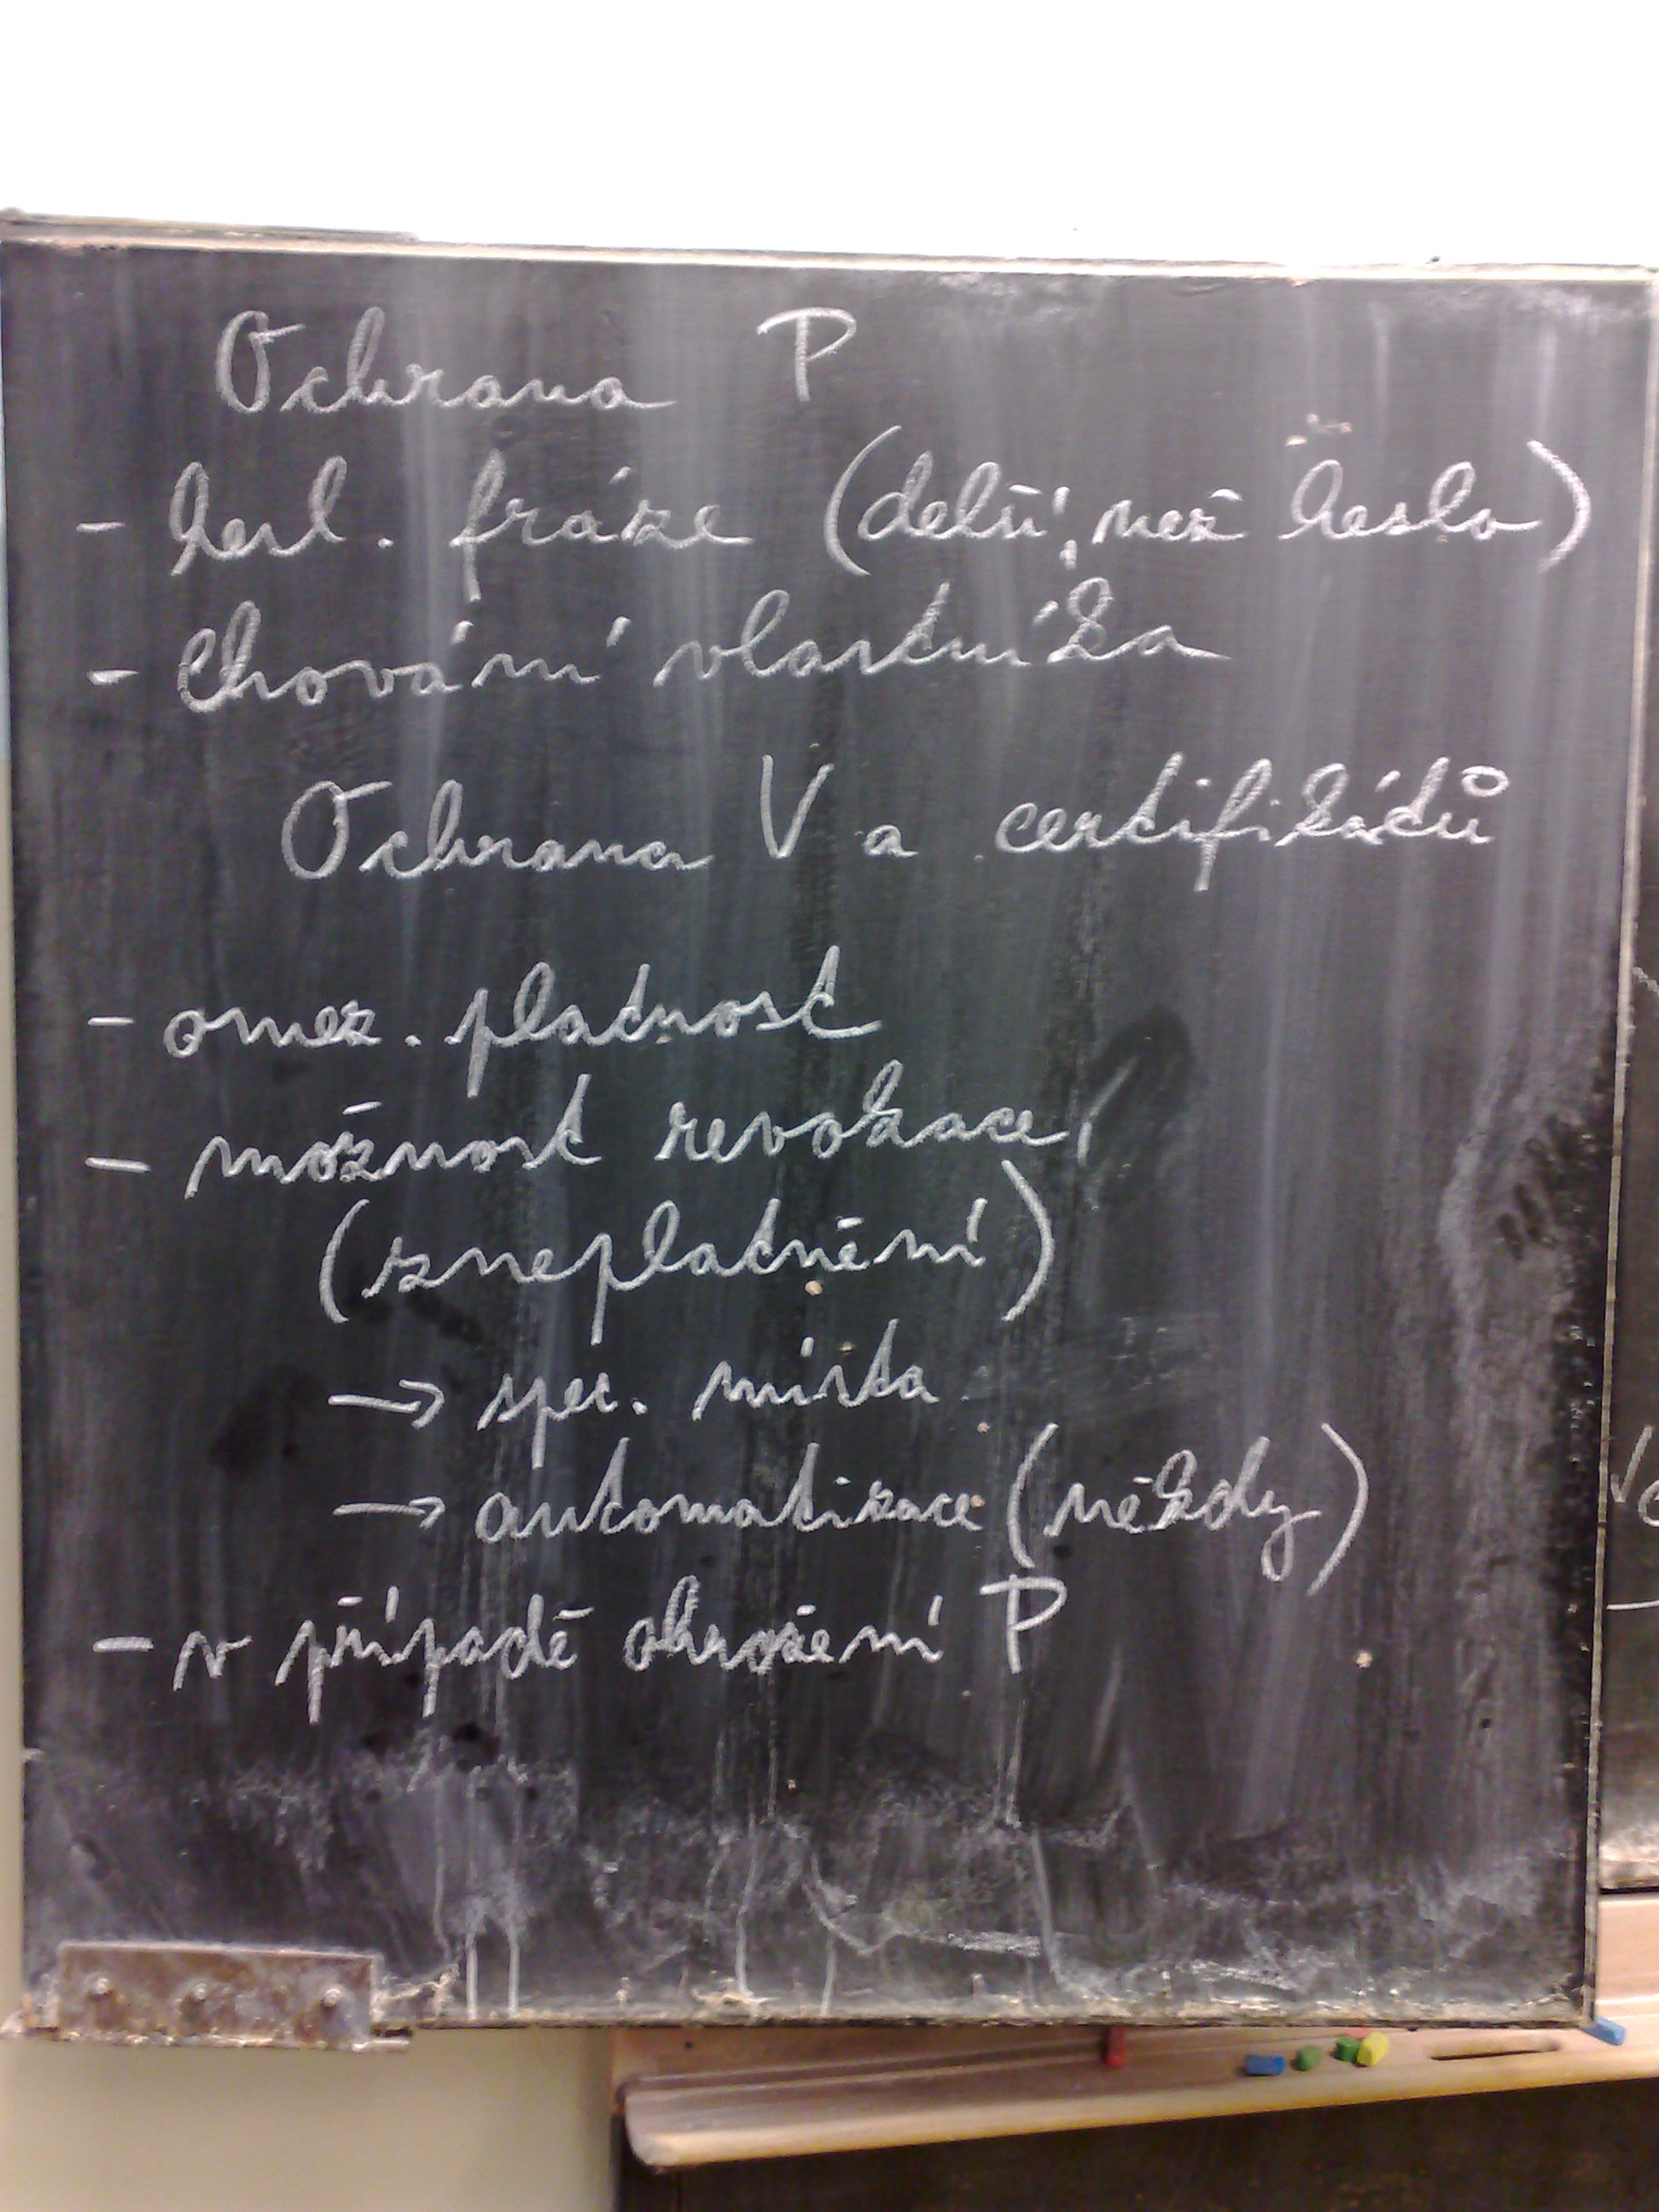 Ochrana P
- hesl. fráze (delší, než heslo)
- chování vlastníka
Ochrana V a certifikátů
- omez. platnost
- možnost revokace,
(zneplatnění)
→ spec. místa
→ automatizace (někdy)
- v případě ohrožení P